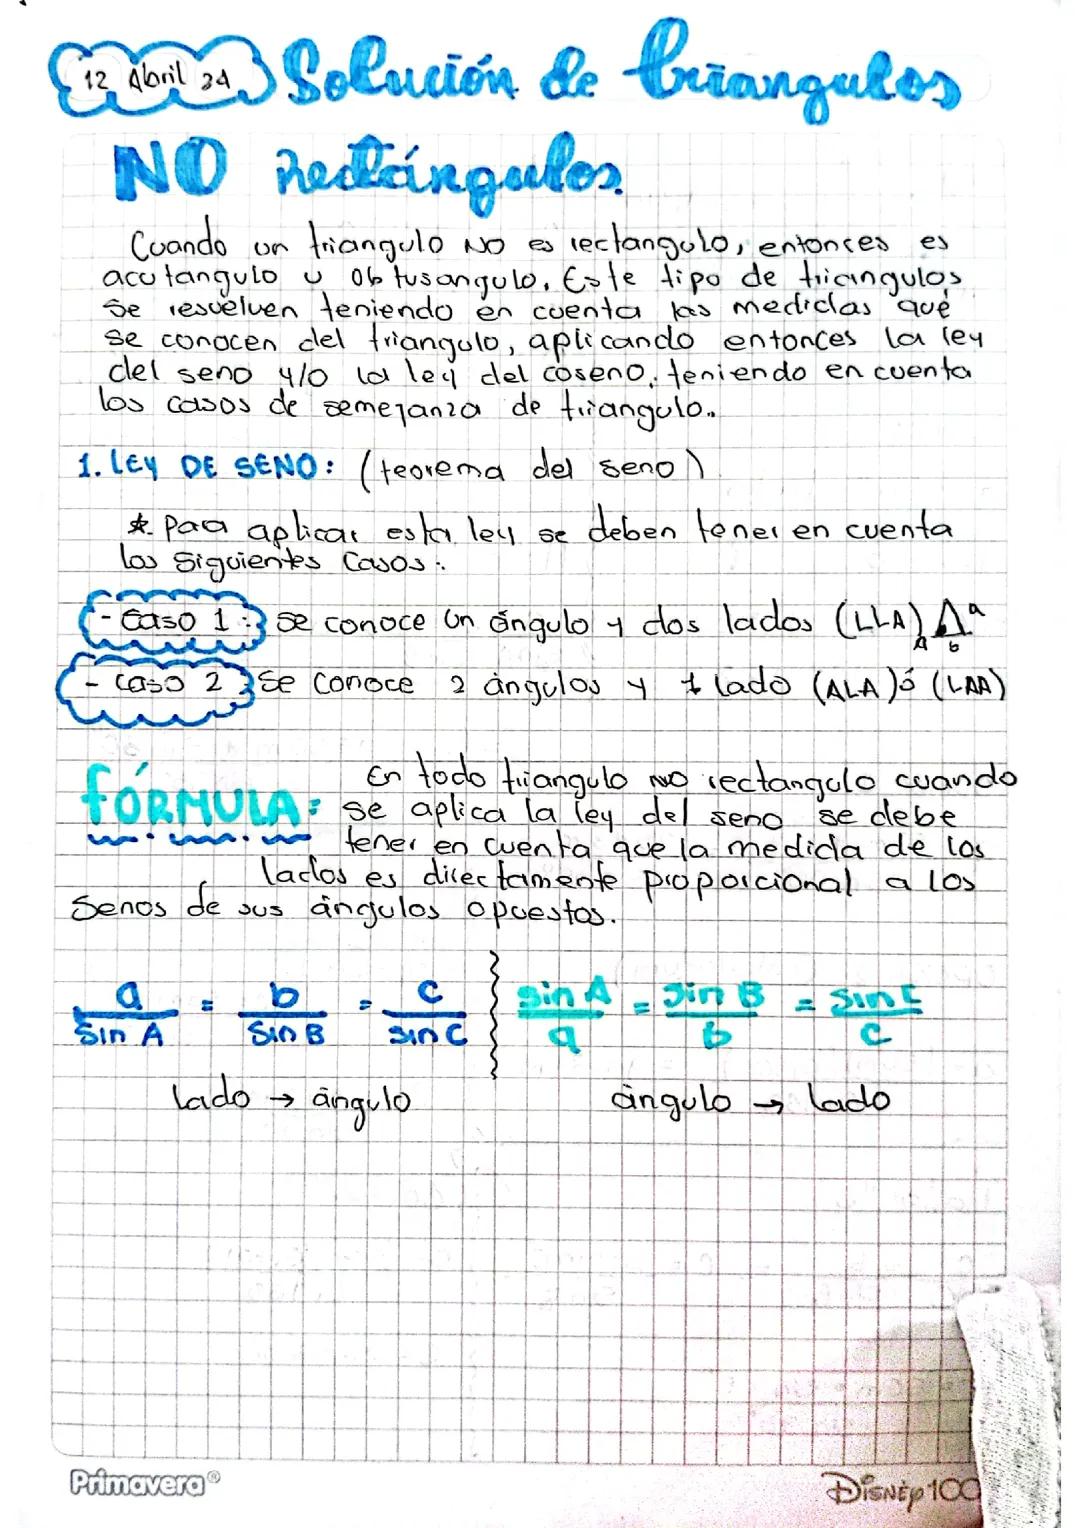 12 Abril 24 Solución de triangulos
NO Rectángulos.
Cuando un triangulo NO es rectangulo, entonces es
acutangulo u obtusangulo. Este tipo de triangulos
se resuelven teniendo en cuenta las medidas que
se conocen del triangulo, aplicando entonces la ley
del seno y/o la ley del coseno, teniendo en cuenta
los casos de semejanza de triangulo..
1. LEY DE SENO: (teorema del seno)
* Para aplicar esta ley se deben tener en cuenta
los siguientes casos:
- Caso 1: se conoce un ángulo y dos lados (LLA) A a b
- Caso 2 se conoce 2 ángulos y 1 lado (ALA) ó (LAA)
FÓRMULA: En todo triangulo NO rectangulo cuando
se aplica la ley del seno se debe
tener en cuenta que la medida de los
lados es directamente proporcional a los
senos de sus ángulos opuestos.
a/Sin A = b/Sin B = c/Sin C sin A/a = Sin B/b = Sin C/c
Lado → ángulo ángulo → lado
Primavera® Disney 100